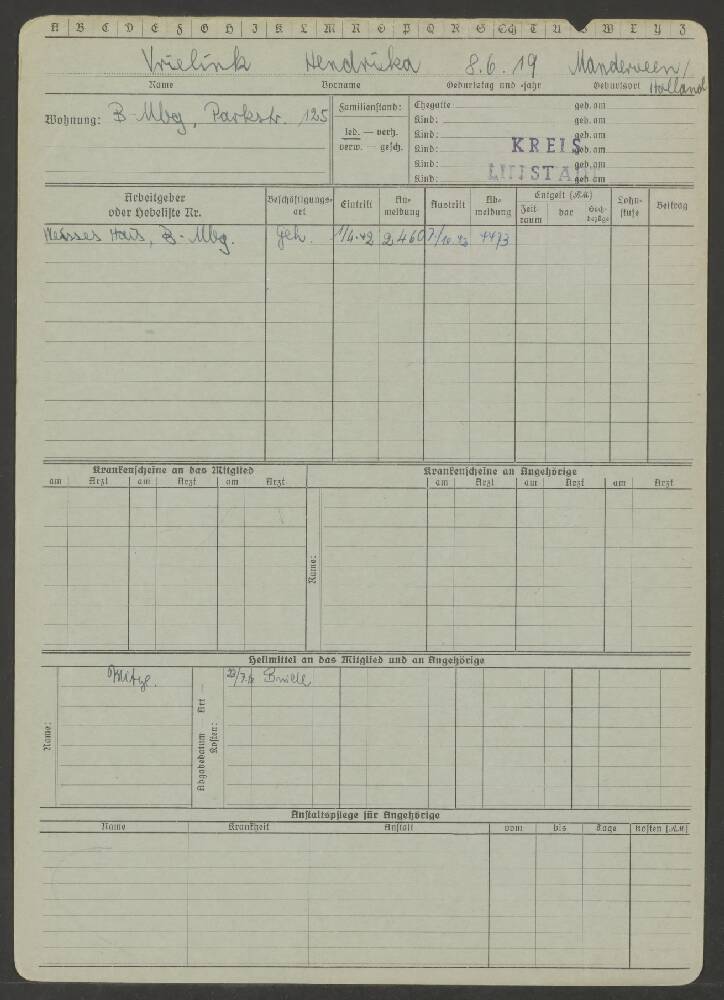 A B C D E F G H I K L M N O P Q R S Sch T U W X Y Z
Vrielink Hendrika 8.6.19 Manderveen/
Name Vorname Geburtstag und -jahr Geburtsort Holland
Wohnung: B-Mbg, Parkstr. 125
Familienstand:
led. — verh.
verw. — gesch.
Ehegatte geb. am
Kind: geb. am
Kind: geb. am
Kind: geb. am
Kind: geb. am
Kind: geb. am
KREIS
Arbeitgeber
oder Hebeliste Nr.
Beschäftigungs-
art
Eintritt
An-
meldung
Austritt
Ab-
meldung
Entgelt (RM)
Zeit-
raum
bar
Sach-
bezüge
Lohn-
stufe
Beitrag
Weisses Haus, B-Mbg. Geh. 1/4.42 2460 7/10.43 4473
Krankenscheine an das Mitglied
am Arzt am Arzt am Arzt
Krankenscheine an Angehörige
Name:
am Arzt am Arzt am Arzt
Heilmittel an das Mitglied und an Angehörige
Name:
Abgabedatum — Art —
Kosten:
Brille
Anstaltspflege für Angehörige
Name Krankheit Anstalt vom bis Tage Kosten (RM)